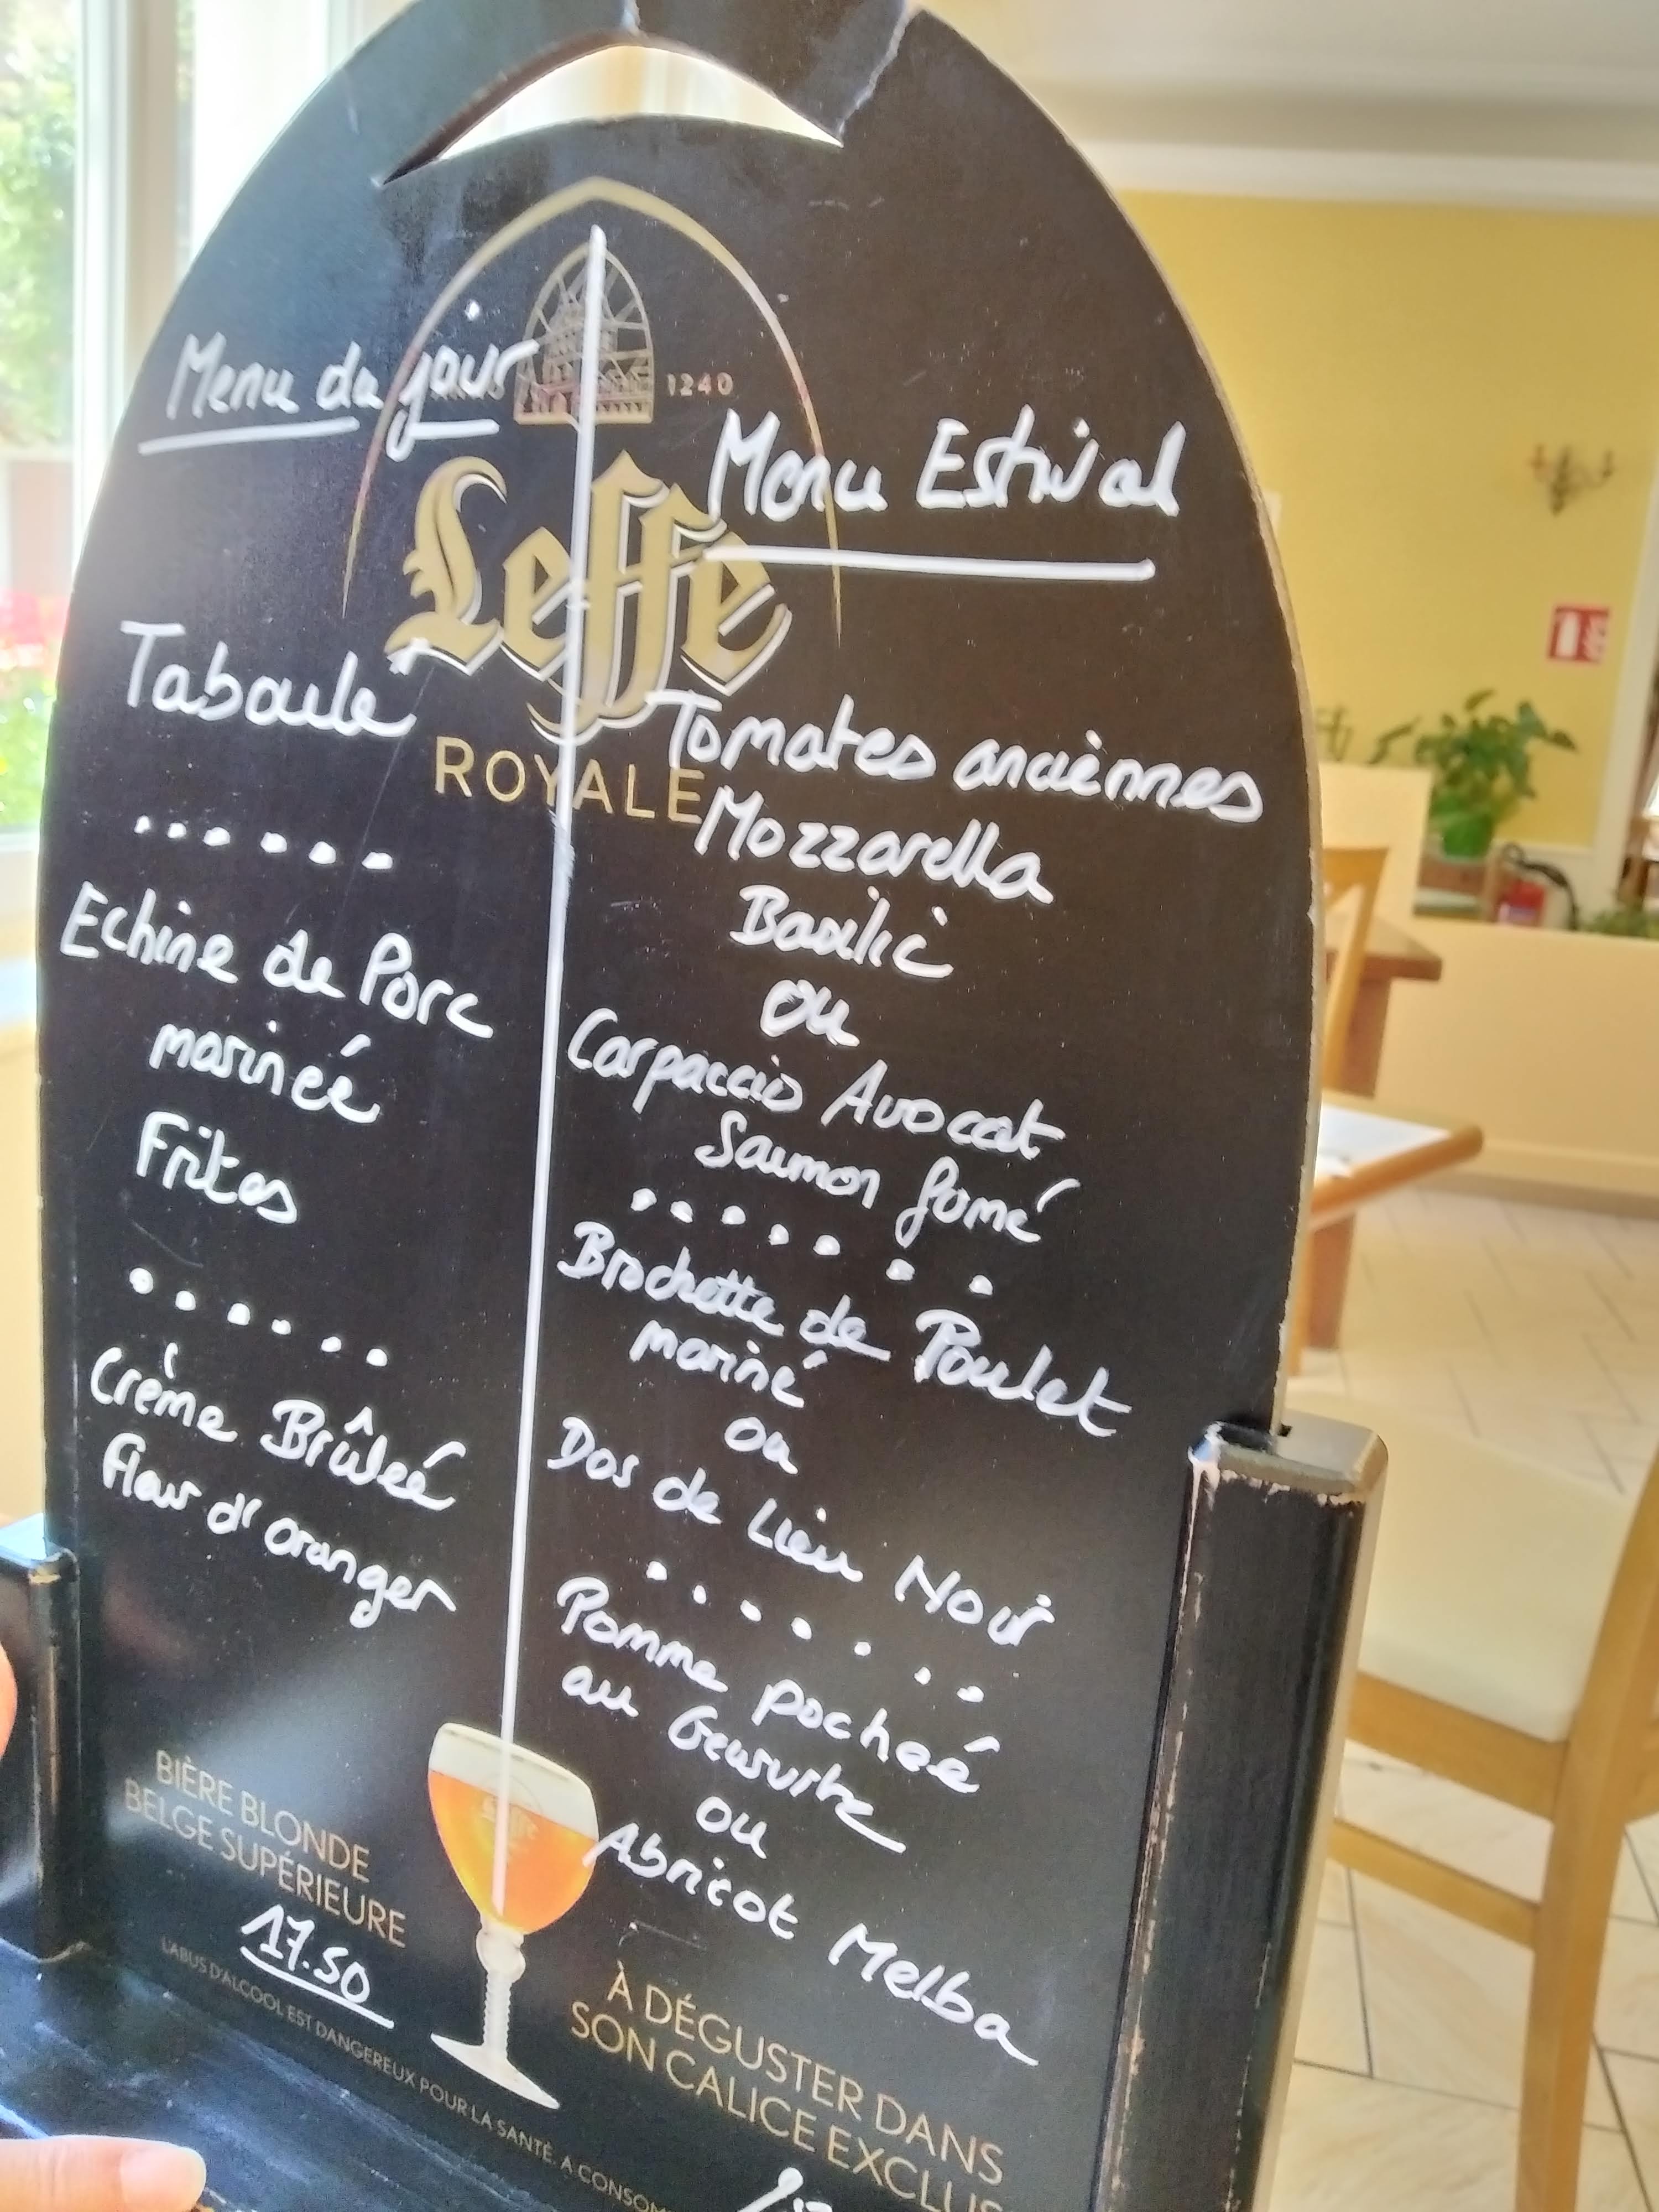 Menu du jour
Taboule
......
Echine de Porc
marineé
Frites
......
Crème Brûleé
fleur d'oranger
17.50
Menu Estival
Tomates anciènnes
Mozzarella
Basilic
ou
Carpaccio Avocat
Saumon fumé
.......
Brochette de Poulet
mariné
ou
Dos de Lieu Noir
.......
Pomme pocheé
au Gewurtz
ou
Abricot Melba
1240
Leffe
ROYALE
BIÈRE BLONDE
BELGE SUPÉRIEURE
À DÉGUSTER DANS
SON CALICE EXCLUS
L'ABUS D'ALCOOL EST DANGEREUX POUR LA SANTÉ. A CONSOM